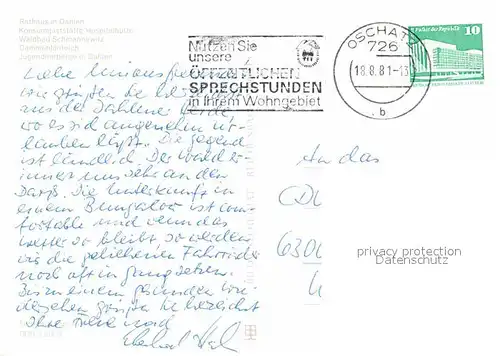 Rathaus in Dahlen
Konsumgaststätte "Hospitalhütte"
Waldbad Schmannewitz
Dammühlenteich
Jugendherberge in Dahlen
Nutzen Sie
unsere
ÖFFENTLICHEN
SPRECHSTUNDEN
in Ihrem Wohngebiet
OSCHATZ
726
18.8.81-13
b
Palast der Republik
10
DDR
Liebe Unionsfreunde
wir grüßen Sie herzlich
aus der Dahlener Heide
wo es sich angenehm ur-
lauben läßt. Die Gegend
ist ländlich. Der Wald er-
innert uns sehr an den
Darß. Die Unterkunft in
einem Bungalow ist com-
fortable und wenn das
Wetter so bleibt, so werden
wir die geliehenen Fahrräder
noch oft in Gang setzen.
Bis zu einem gesunden Wie-
dersehen grüßen Sie herzlichst
Ihre
An das
CDU
6300
privacy protection
Datenschutz